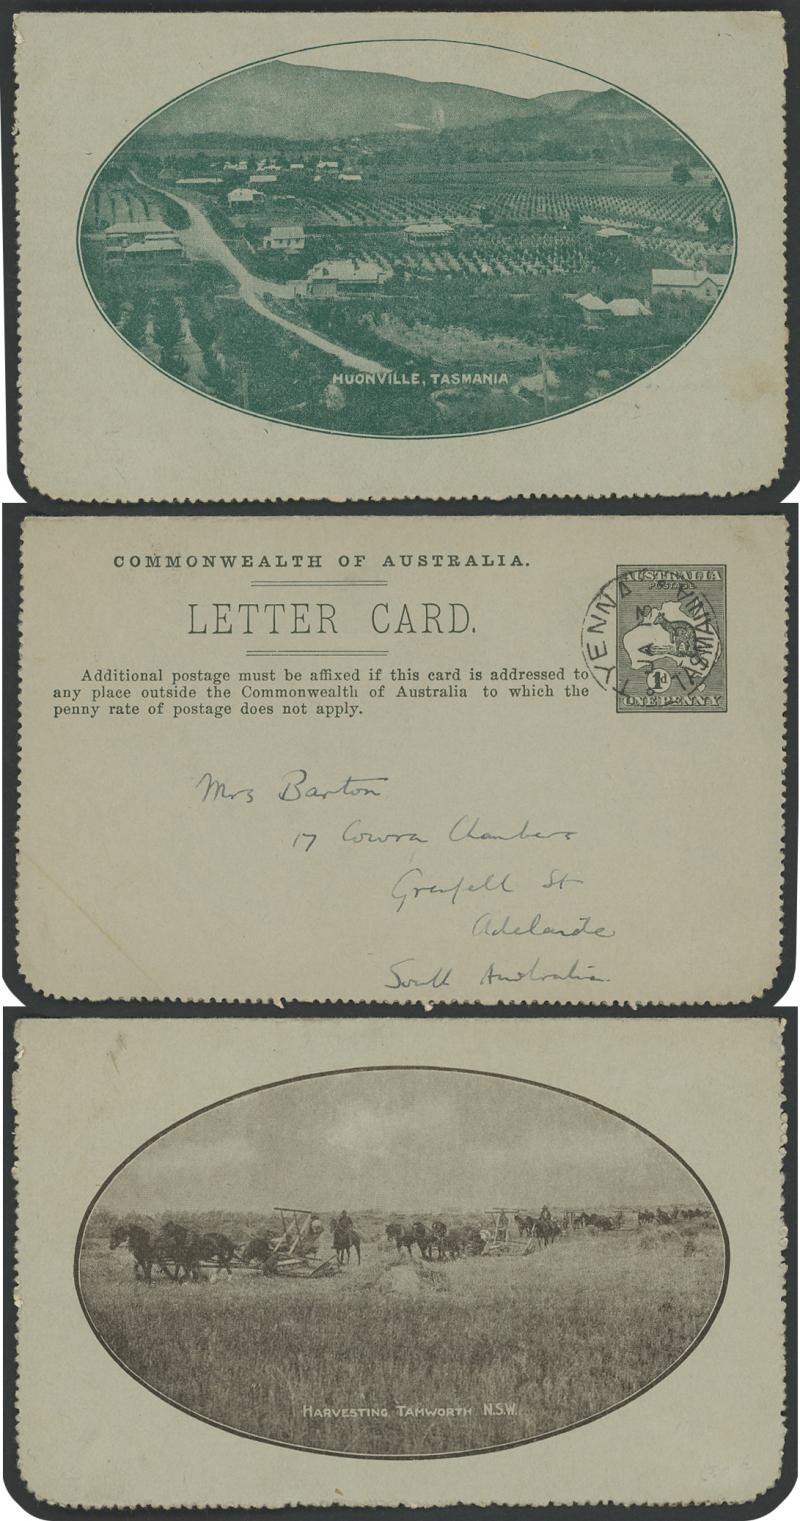 HUONVILLE, TASMANIA
COMMONWEALTH OF AUSTRALIA.
LETTER CARD.
Additional postage must be affixed if this card is addressed to
any place outside the Commonwealth of Australia to which the
penny rate of postage does not apply.
AUSTRALIA
POSTAGE
1d
ONE PENNY
TYENNA
TASMANIA
Mrs Barton
17 Cowra Chambers
Grenfell St
Adelaide
South Australia.
HARVESTING TAMWORTH N.S.W.